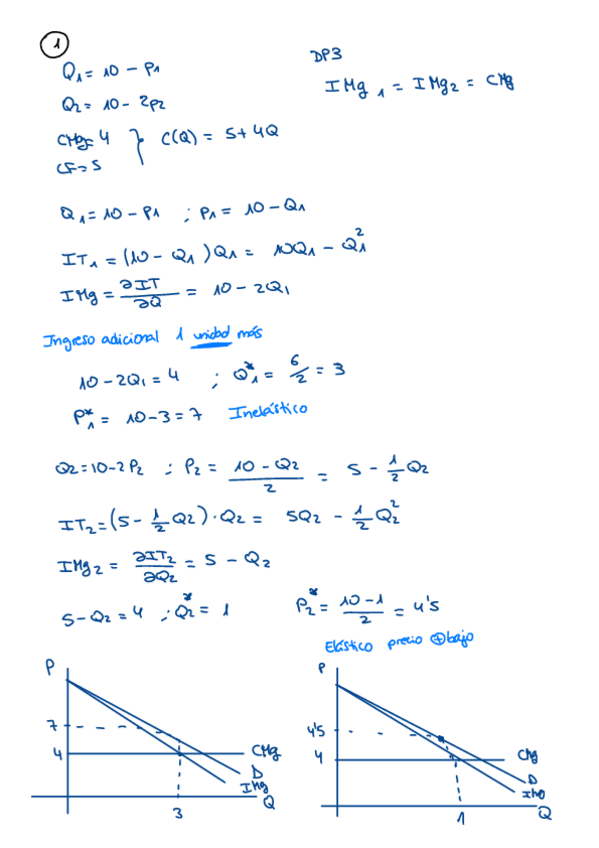 1
Q1 = 10 - P1
DP3
IMg 1 = IMg 2 = CMg
Q2 = 10 - 2P2
CMg = 4 } C(Q) = 5 + 4Q
CF = 5
Q1 = 10 - P1 ; P1 = 10 - Q1
IT1 = (10 - Q1) Q1 = 10Q1 - Q1²
IMg = ∂IT/∂Q = 10 - 2Q1
Ingreso adicional 1 unidad más
10 - 2Q1 = 4 ; Q1* = 6/2 = 3
P1* = 10 - 3 = 7 Inelástico
Q2 = 10 - 2P2 ; P2 = (10 - Q2)/2 = 5 - 1/2 Q2
IT2 = (5 - 1/2 Q2) · Q2 = 5Q2 - 1/2 Q2²
IMg2 = ∂IT2/∂Q2 = 5 - Q2
5 - Q2 = 4 ; Q2* = 1 P2* = (10 - 1)/2 = 4'5
Elástico precio ⊕ bajo
P
7
4
CMg
D
IMg
Q
3
P
4'5
4
CMg
D
IMg
Q
1